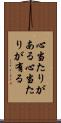 心当たりが
ある心当た
りが有る